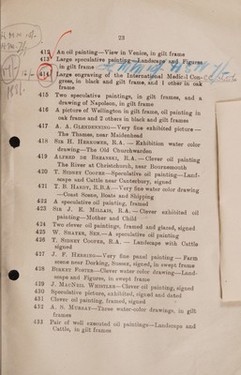 23
412 An oil painting—View in Venice, in gilt frame
413 Large speculative painting—Landscape and Figures
in gilt frame
414 Large engraving of the International Medical Con-
gress, in black and gilt frame, and 1 other in oak
frame
415 Two speculative paintings, in gilt frames, and a
drawing of Napoleon, in gilt frame
416 A picture of Wellington in gilt frame, oil painting in
oak frame and 2 others in black and gilt frames
417 A. A. Glendenning—Very fine exhibited picture—
The Thames, near Maidenhead
418 Sir H. Herkomer, R.A. — Exhibition water color
drawing—The Old Churchwarden
419 Alfred de Breanski, R.A.—Clever oil painting
The River at Christchurch, near Bournemouth
420 T. Sidney Cooper—Speculative oil painting—Land-
scape and Cattle near Canterbury, signed
421 T. B. Hardy, R.B.A.—Very fine water color drawing
—Coast Scene, Boats and Shipping
422 A speculative oil painting, framed
423 Sir J. E. Millais, R.A. — Clever exhibited oil
painting—Mother and Child
424 Two clever oil paintings, framed and glazed, signed
425 W. Shayer, Sen.—A speculative oil painting
426 T. Sidney Cooper, R.A. — Landscape with Cattle
signed
427 J. F. Herring—Very fine panel painting — Farm
scene near Dorking, Sussex, signed, in swept frame
428 Birket Foster—Clever water color drawing—Land-
scape and Figures, in swept frame
429 J. MacNeil Whistler—Clever oil painting, signed
430 Speculative picture, exhibited, signed and dated
431 Clever oil painting, framed, signed
432 A. S. Murray—Three water-color drawings, in gilt
frames
433 Pair of well executed oil paintings—Landscape and
Cattle, in gilt frames